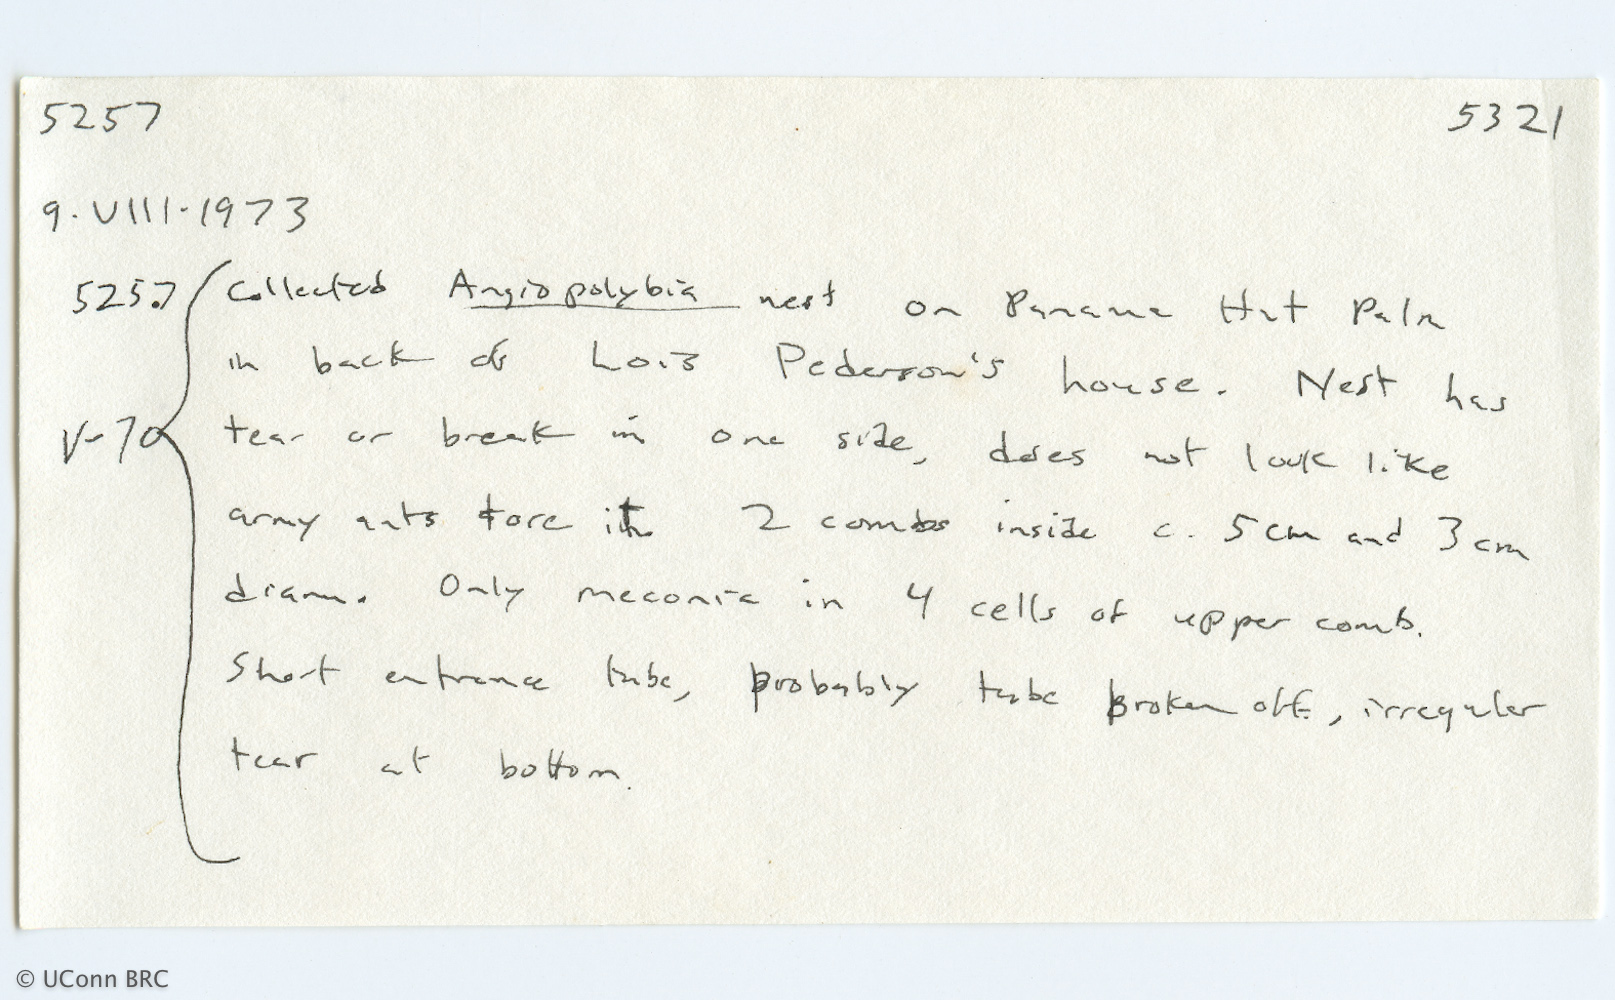 5257 5321
9.VIII.1973
5257 Collected Angiopolybia nest on Panama Hat Palm
in back of Lois Pederson's house. Nest has
V-70 tear or break in one side, does not look like
army ants tore it. 2 combs inside c. 5 cm and 3 cm
diam. Only meconia in 4 cells of upper comb.
Short entrance tube, probably tube broken off, irregular
tear at bottom.
© UConn BRC